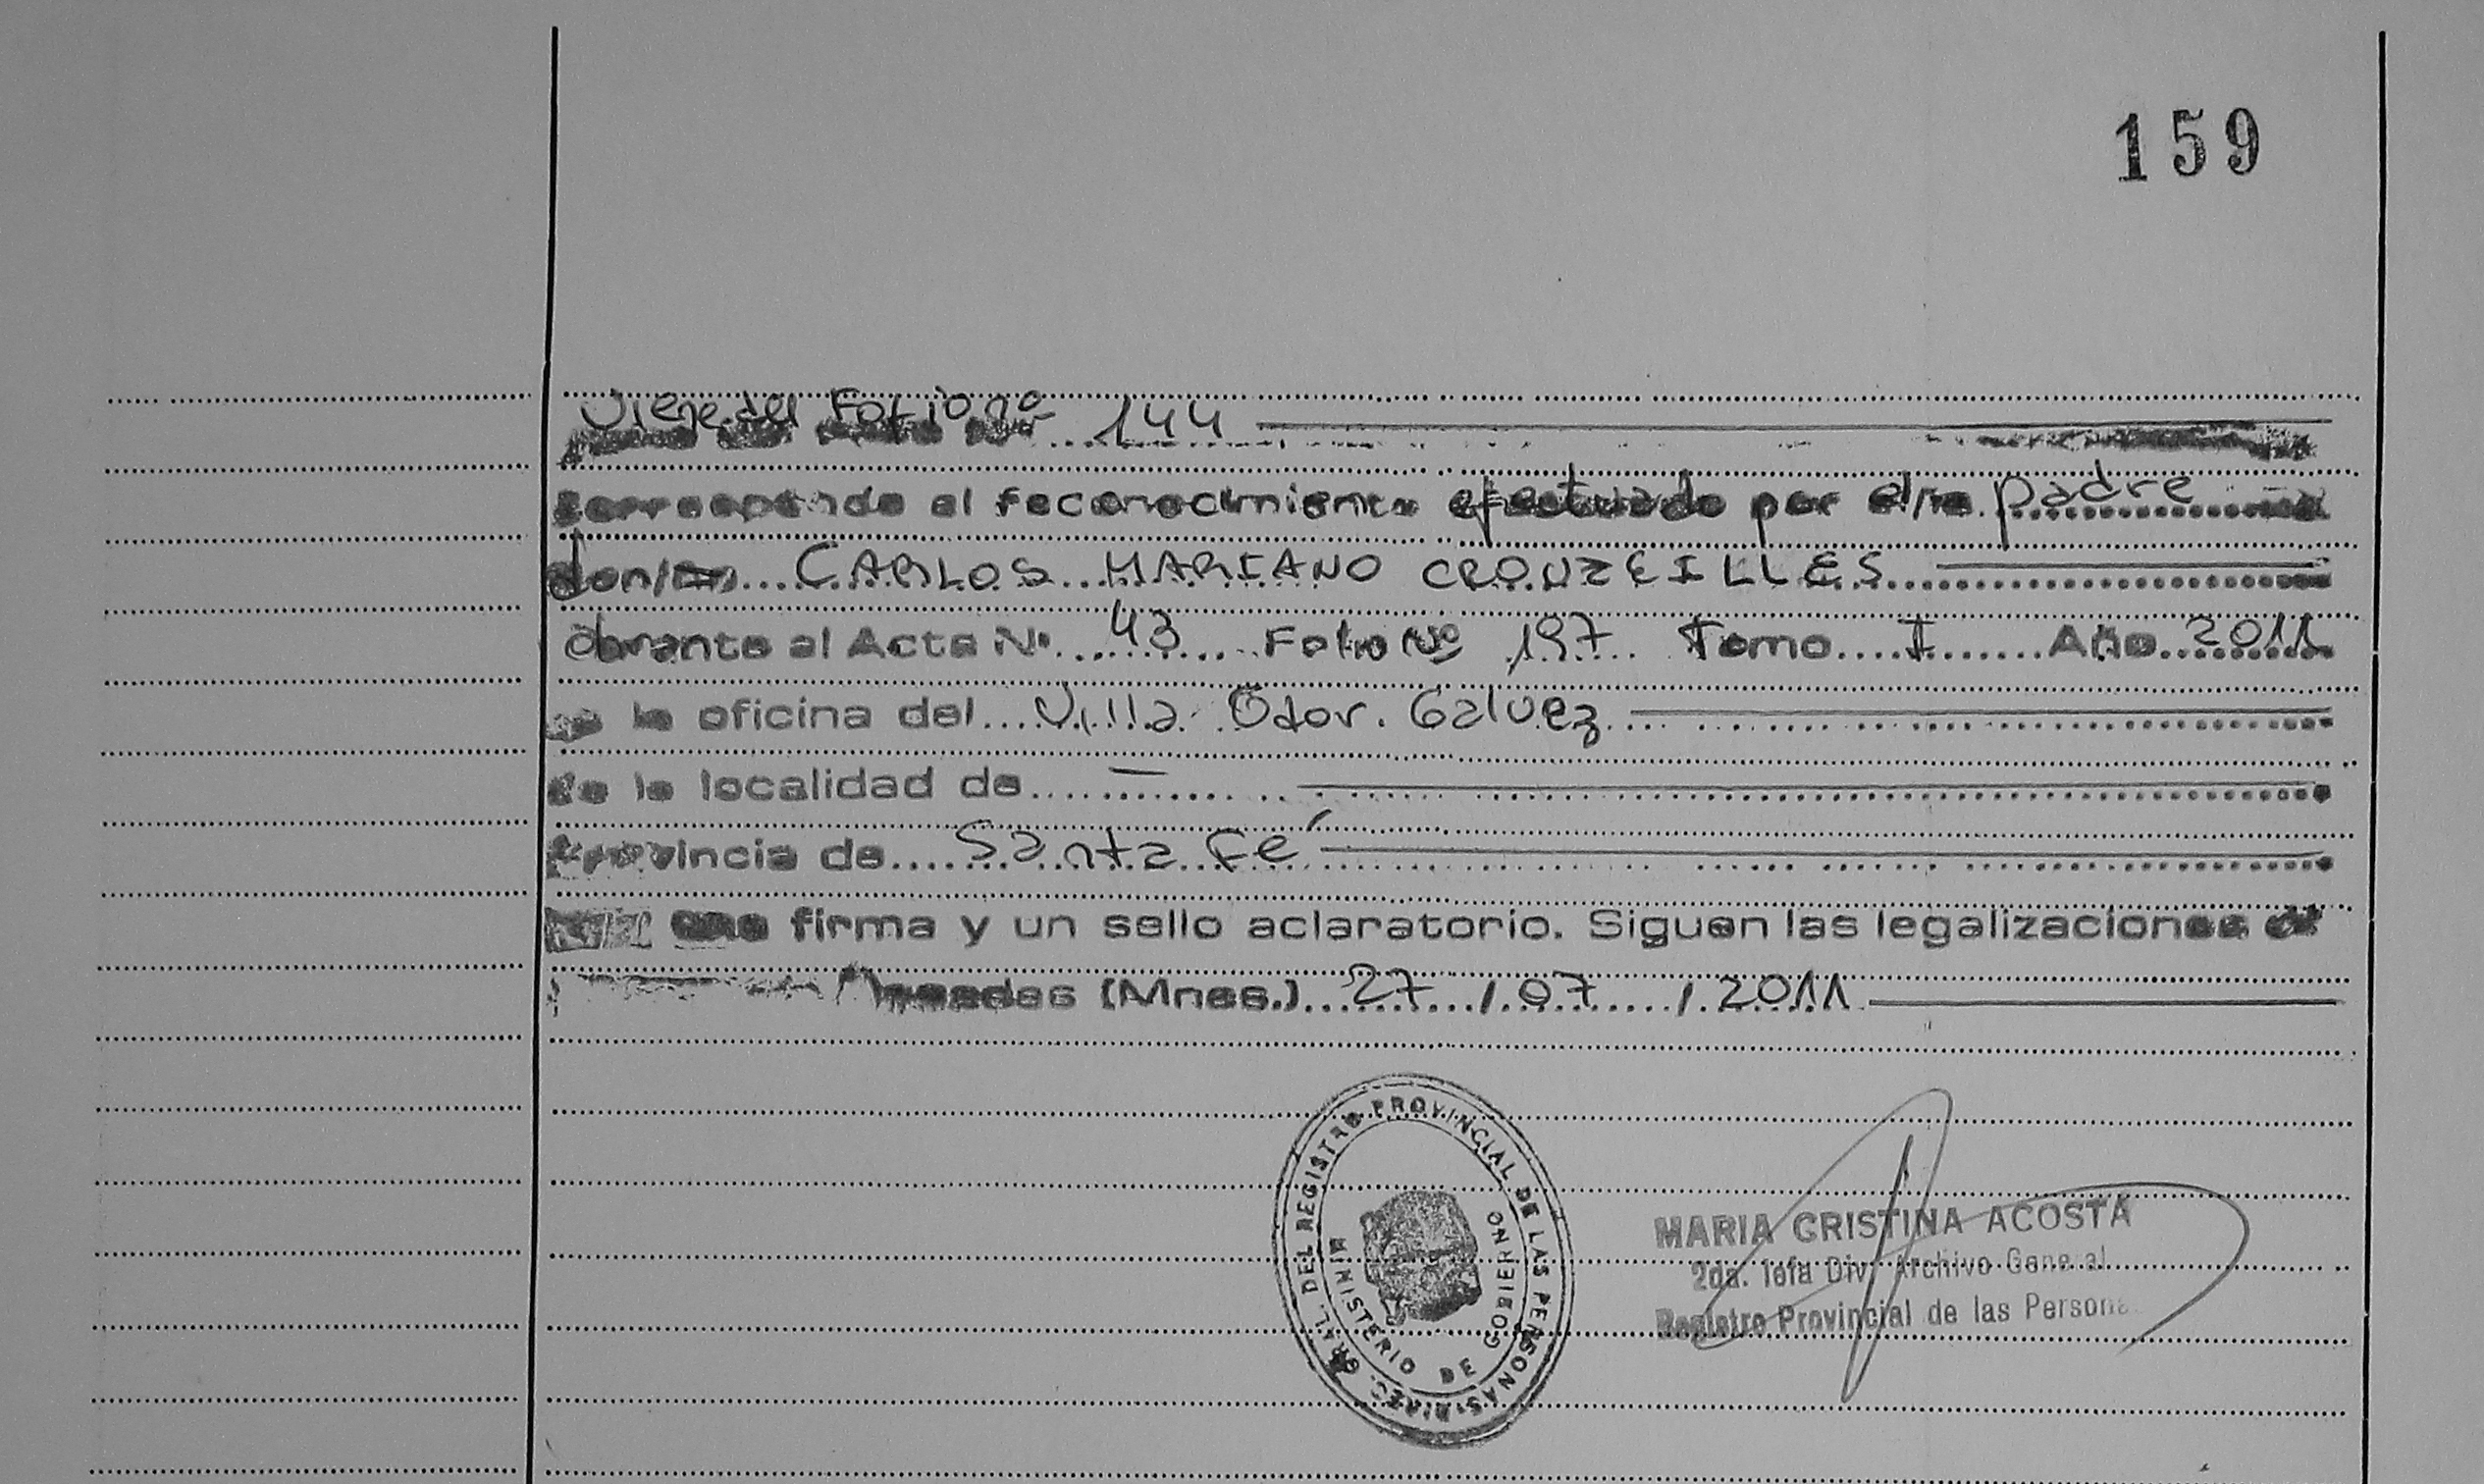 159
Viene del Folio nº 144
Corresponde al reconocimiento efectuado por el/la padre
don/ña CARLOS MARIANO CROUZEILLES
obrante al Acta Nº 43 Folio Nº 197 Tomo I Año 2011
de la oficina del Villa Gdor. Galvez
de la localidad de —
Provincia de Santa Fé
una firma y un sello aclaratorio. Siguen las legalizaciones de
Posadas (Mnes.) 27 / 07 / 2011
DIREC. GRAL. DEL REGISTRO PROVINCIAL DE LAS PERSONAS
MINISTERIO DE GOBIERNO
MARIA CRISTINA ACOSTA
2da. Jefa Div. Archivo General
Registro Provincial de las Personas